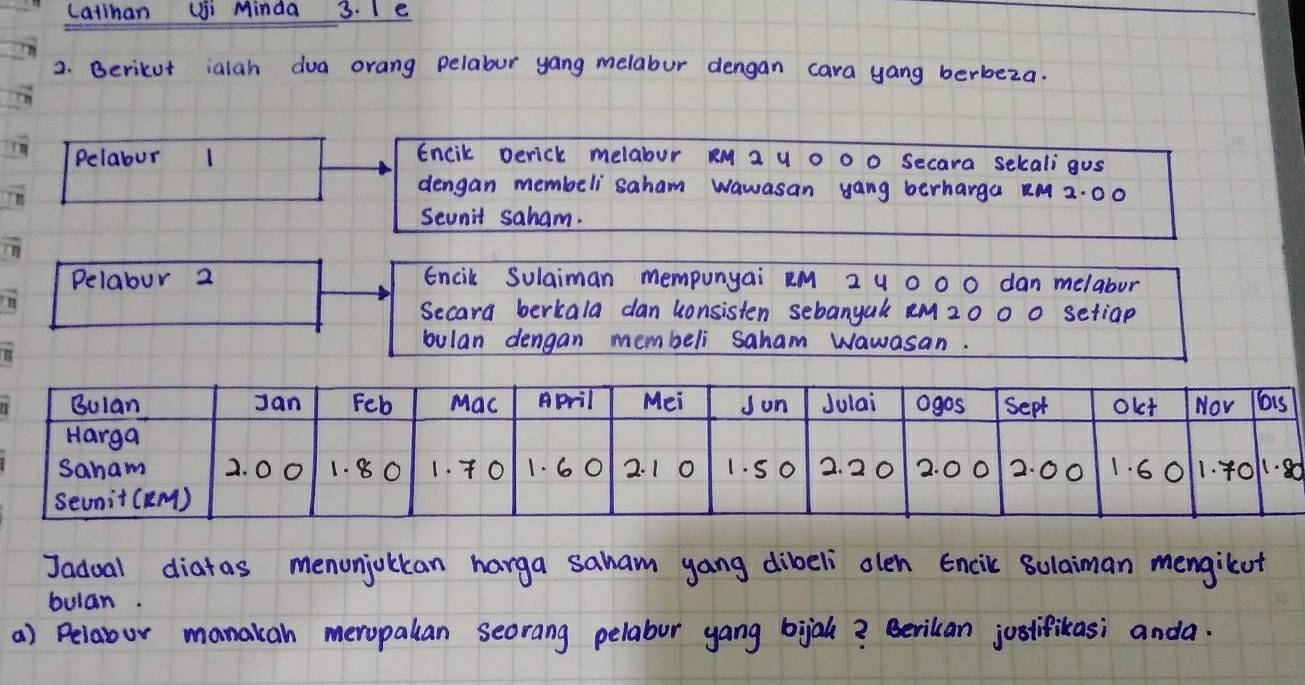 Latihan Uji Minda 3.1e
2. Berikut ialah dua orang pelabur yang melabur dengan cara yang berbeza.
Pelabur 1
Encik Derick melabur RM 24000 secara sekali gus
dengan membeli saham Wawasan yang berharga RM 2.00
Seunit saham.
Pelabur 2
Encik Sulaiman mempunyai RM 24000 dan melabur
Secara berkala dan konsisten sebanyak RM2000 setiap
bulan dengan membeli saham Wawasan.
Bulan Jan Feb Mac April Mei Jun Julai Ogos Sept Okt Nov Dis
Harga
Saham 2.00 1.80 1.70 1.60 2.10 1.50 2.20 2.00 2.00 1.60 1.70 1.80
Seunit (RM)
Jadual diatas menunjukkan harga saham yang dibeli oleh Encik Sulaiman mengikut
bulan.
a) Pelabur manakah merupakan seorang pelabur yang bijak? Berikan justifikasi anda.